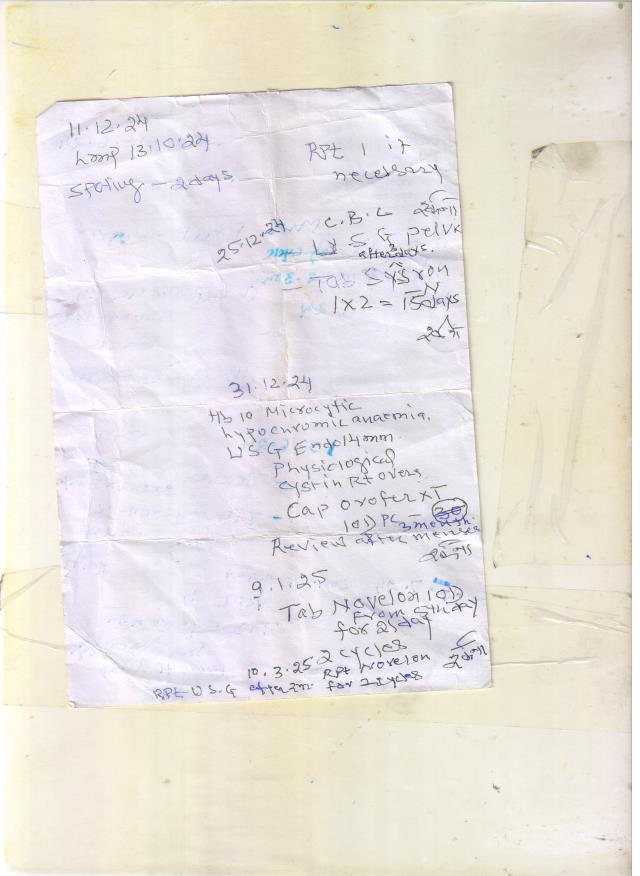 11.12.24
Lmp 13.10.24
Spoting - 2 days
Rpt 1 if
necessary
25.12.24
C.B.C
U S G pelvic
after 3 days.
Tab Sysron N
1x2 = 15 days
31.12.24
Hb 10 Microcytic
hypochromic anaemia.
U S G Endo 14mm.
Physiclogical
cyst in Rt overy
Cap orofer XT
10D PC 3 month.
Review after menses
9.1.25
Tab Novelon 10D
from 5th day
for 21 day
2 cycles
10.3.25
Rpt Novelon
for 2 cycles
RPt U.S.G after